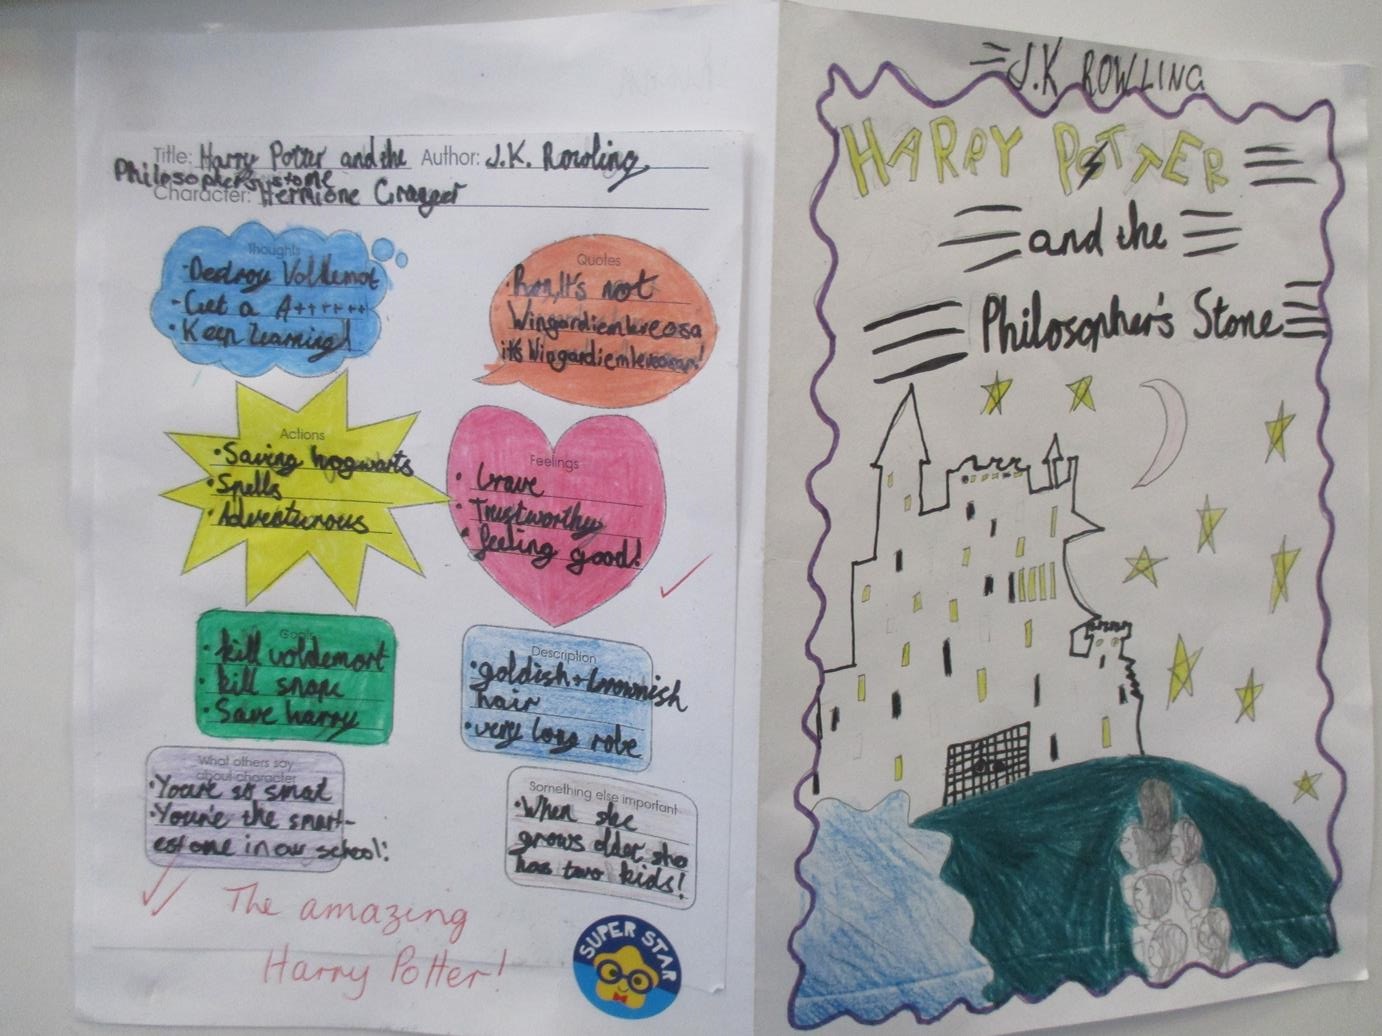 Title: Harry Potter and the Author: J.K. Rowling
Philosopher's stone
Character: Hermione Granger
Thoughts
·Destroy Voldemot
·Get a A++++++
·Keep Learning!
Quotes
·Ron, It's not
Wingardiemleveosa
it's Wingardiemleveosar!
Actions
·Saving hogwarts
·Spells
·Adventurous
Feelings
·brave
·Trustworthy
·feeling good!
Goals
·kill voldemort
·kill snape
·Save harry
Description
·goldish + brownish
hair
·very long robe
What others say
about character
·You're so smat
·You're the smart-
est one in our school!
Something else important
·When she
grows older, she
has two kids!
The amazing
Harry Potter!
SUPER STAR
J.K ROWLING
HARRY POTTER
and the
Philosopher's Stone